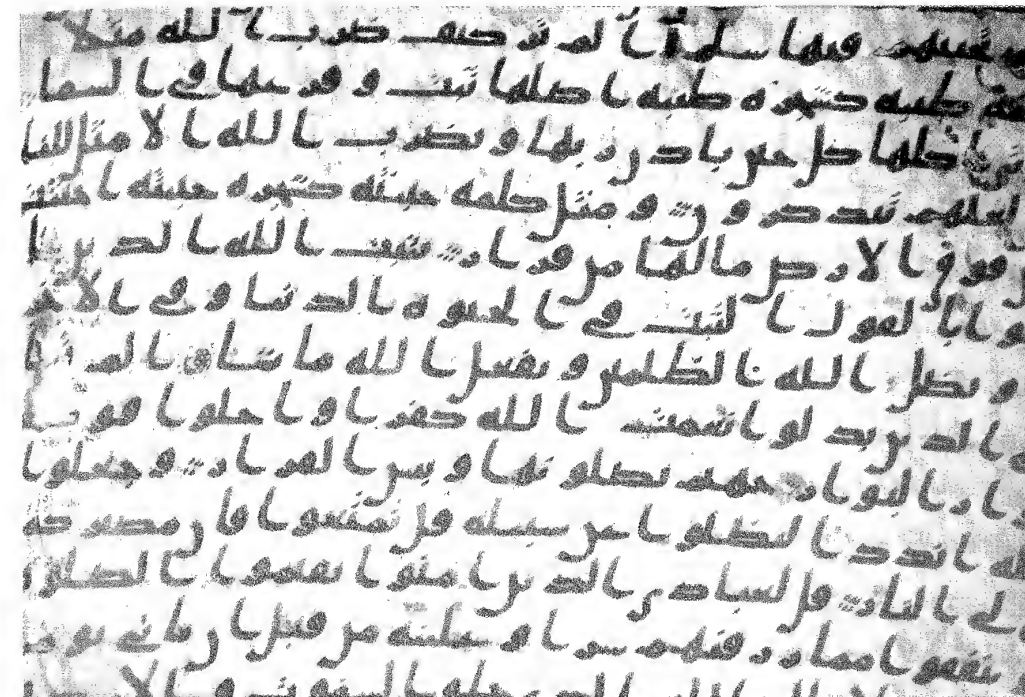 تحيتهم فيها سلم الم تر كيف ضرب الله مثلا
كلمه طيبه كشجره طيبه اصلها ثبت وفرعها في السما
تي اكلها كل حين باذن ربها ويضرب الله الامثل للنا
لعلهم يتذكرون ومثل كلمه خبيثه كشجره خبيثه اجتثت
من فوق الارض ما لها من قرار يثبت الله الذين ا
منوا بالقول الثبت في الحيوه الدنيا وفي الاخر
ويضل الله الظلمين ويفعل الله ما يشا الم تر ا
الذين بدلوا نعمت الله كفرا واحلوا قو
دار البوار جهنم يصلونها وبيس القرار وجعلوا
لله اندد ا ليضلوا عن سبيله قل تمتعوا فان مصيركم
الى النار قل لعبادي الذين امنوا يقيموا الصلوه
ينفقوا مما رزقنهم سرا وعلنيه من قبل ان ياتي يوم